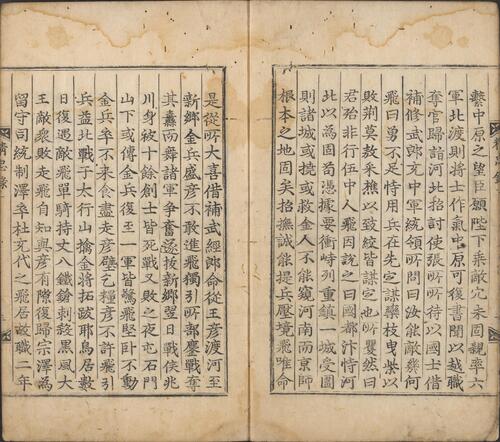 繫中原之望臣願陛下乘敵穴未固親率六
軍北渡則將士作氣中原可復書聞以越職
奪官歸詣河北招討使張所所待以國士借
補修武郎充中軍統領所問曰汝能敵幾何
飛曰勇不足恃用兵在先定謀欒枝曳柴以
敗荊莫敖采樵以致絞皆謀定也所矍然曰
君殆非行伍中人飛因說之曰國都汴恃河
北以為固苟憑據要衝峙列重鎮一城受圍
則諸城或撓或救金人不能窺河南而京師
根本之地固矣招撫誠能提兵壓境飛唯命
是從所大喜借補武經郎命從王彥渡河至
新鄉金兵盛彥不敢進飛獨引所部鏖戰奪
其纛而舞諸軍爭奮遂拔新鄉翌日戰侯兆
川身被十餘創士皆死戰又敗之夜屯石門
山下或傳金兵復至一軍皆驚飛堅臥不動
金兵卒不來食盡走彥壁乞糧彥不許飛引
兵益北戰于太行山擒金將拓跋耶烏居數
日復遇敵飛單騎持丈八鐵鎗刺殺黑風大
王敵眾敗走飛自知與彥有隙復歸宗澤為
留守司統制澤卒杜充代之飛居故職二年